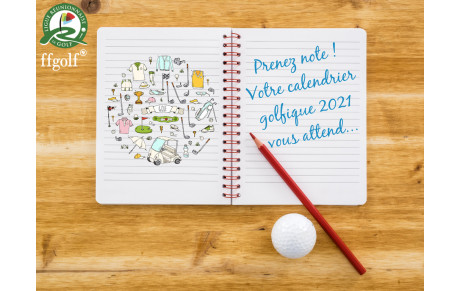 LIGUE RÉUNIONNAISE
DE GOLF
ffgolf®
Prenez note !
Votre calendrier
golfique 2021
vous attend...